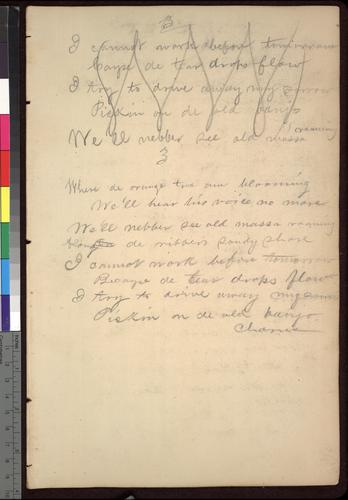 3
I cannot work before tomorrow
Cayse de tear drops flow
I try to drive away my sorrow
Pickin on de old banjo
We'll nebber see old massa roaming
3
Where de orange tree am blooming
We'll hear his voice no more
We'll nebber see old massa roaming
de ribbers sandy shore
I cannot work before tomorrow
Bicayse de tear drops flow
I try to drive away my
Pickin on de old banjo.
Chorus